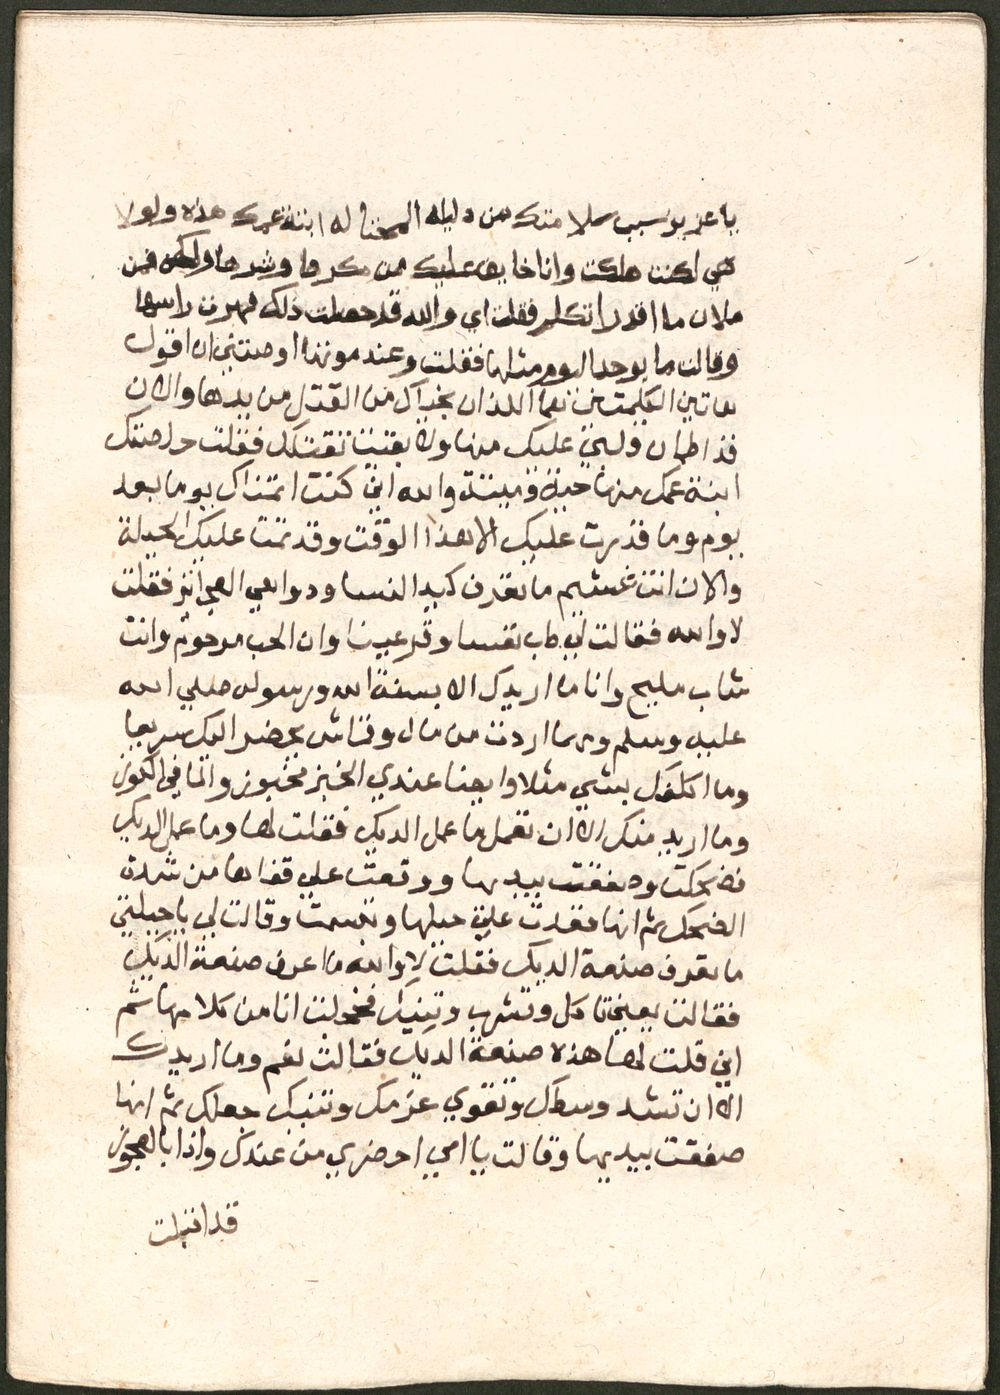 يا عزيز سبب سلامتك من دليله المحتاله ابنة عمك هذه ولولا
هي لكنت هلكت وانا خايفه عليك من مكرها وشرها ولكن فمي
ملان ما اقدر اتكلم فقلت اي والله قد حصلت ذلك فهزت راسها
وقالت ما يوجد اليوم مثلها فقلت وعند موتها اوصتني ان اقول
هاتين الكلمتين نعما اللذان نجياك من القتل من يدها والان
قد اطمان ولبي عليك منها ولا بقيت تقتلك فقلت خلصتك
ابنة عمك منها حية وميتة والله اني كنت اتمناك يوما بعد
يوم وما قدرت عليك الا هذا الوقت وقد تمت عليك الحيلة
والان انت غشيم ما تعرف كيد النسا ودواهي العجائز فقلت
لا والله فقالت لي طب نفسا وقر عينا وان الحب مرحوم وانت
شاب مليح وانا ما اريدك الا بسنة الله ورسوله صلي الله
عليه وسلم ومهما اردت من مال وقماش يحضر اليك سريعا
وما اكلفك بشي مثلا وايضا عندي الخبز مخبوز والما في الكوز
وما اريد منك الا ان تعمل ما عمل الديك فقلت لها وما عمل الديك
فضحكت وصفقت بيديها ووقعت علي قفاها من شدة
الضحك ثم انها قعدت علي حيلها وتبسمت وقالت لي يا
ما تعرف صنعة الديك فقلت لا والله ما اعرف صنعة الديك
فقالت يعني تاكل وتشرب وتنيك فخجلت انا من كلامها ثم
اني قلت لها هذه صنعة الديك فقالت نعم وما اريدك
الا ان تشد وسطك وتقوي عزمك وتنيك جهدك ثم انها
صفقت بيديها وقالت يا امي احضري من عندك واذا بالعجوز
قد اقبلت